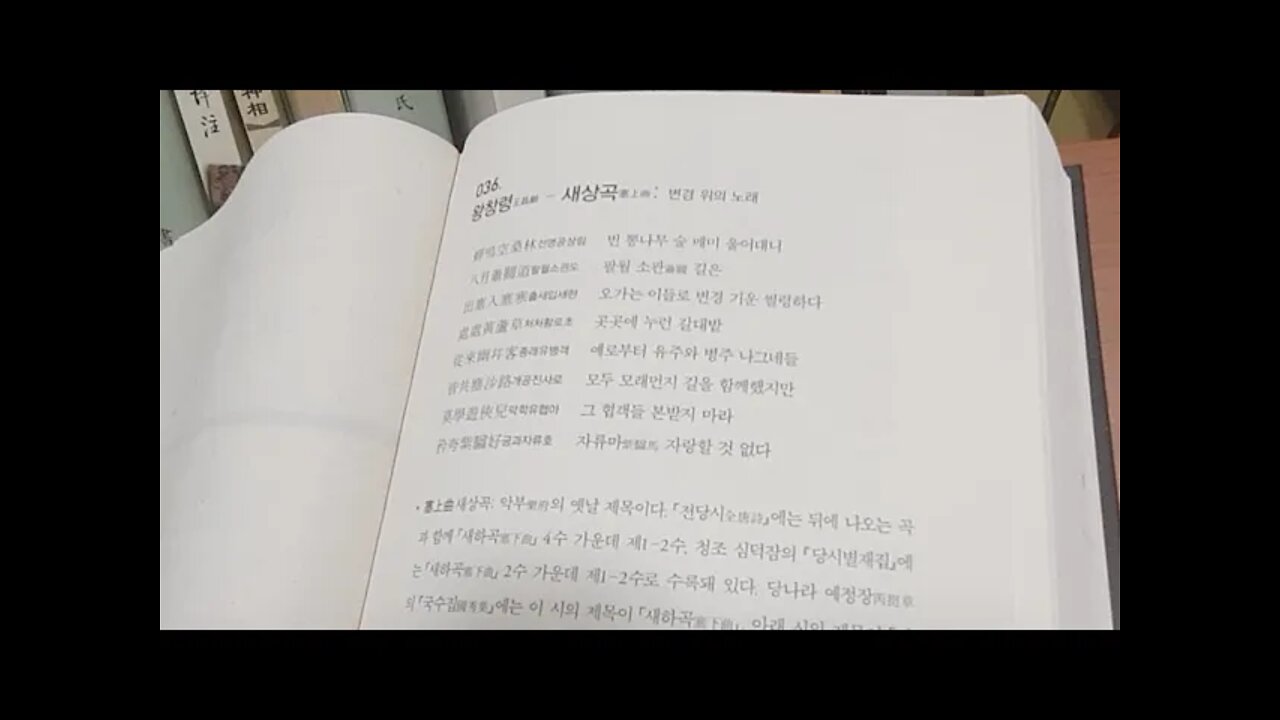 詳注
神相
氏
036.
왕창령王昌齡 - 새상곡塞上曲: 변경 위의 노래
蟬鳴空桑林선명공상림 빈 뽕나무 숲 매미 울어대니
八月蕭關道팔월소관도 팔월 소관蕭關 길은
出塞入塞寒출새입새한 오가는 이들로 변경 기운 썰렁하다
處處黃蘆草처처황로초 곳곳에 누런 갈대밭
從來幽幷客종래유병객 예로부터 유주와 병주 나그네들
皆共塵沙路개공진사로 모두 모래먼지 길을 함께했지만
莫學遊俠兒막학유협아 그 협객들 본받지 마라
誇紫騮好긍과자류호 자류마紫騮馬 자랑할 것 없다
• 塞上曲새상곡: 악부樂府의 옛날 제목이다. 『전당시全唐詩』에는 뒤에 나오는 곡
과 함께 「새하곡塞下曲」 4수 가운데 제1-2수, 청조 심덕잠의 『당시별재집』에
는 「새하곡塞下曲」 2수 가운데 제1-2수로 수록돼 있다. 당나라 예정장芮挺章
의 『국수집國秀集』에는 이 시의 제목이 「새하곡塞下曲」, 아래 시의 제목이